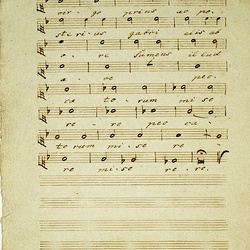 vir - go prius ac po -
steri - us gabri elis ab
o - re sumens illud
a - ve pec -
ca - to - rum mi - se
re - re pec - ca -
torum mi - se - re -
re mi - se - re re.